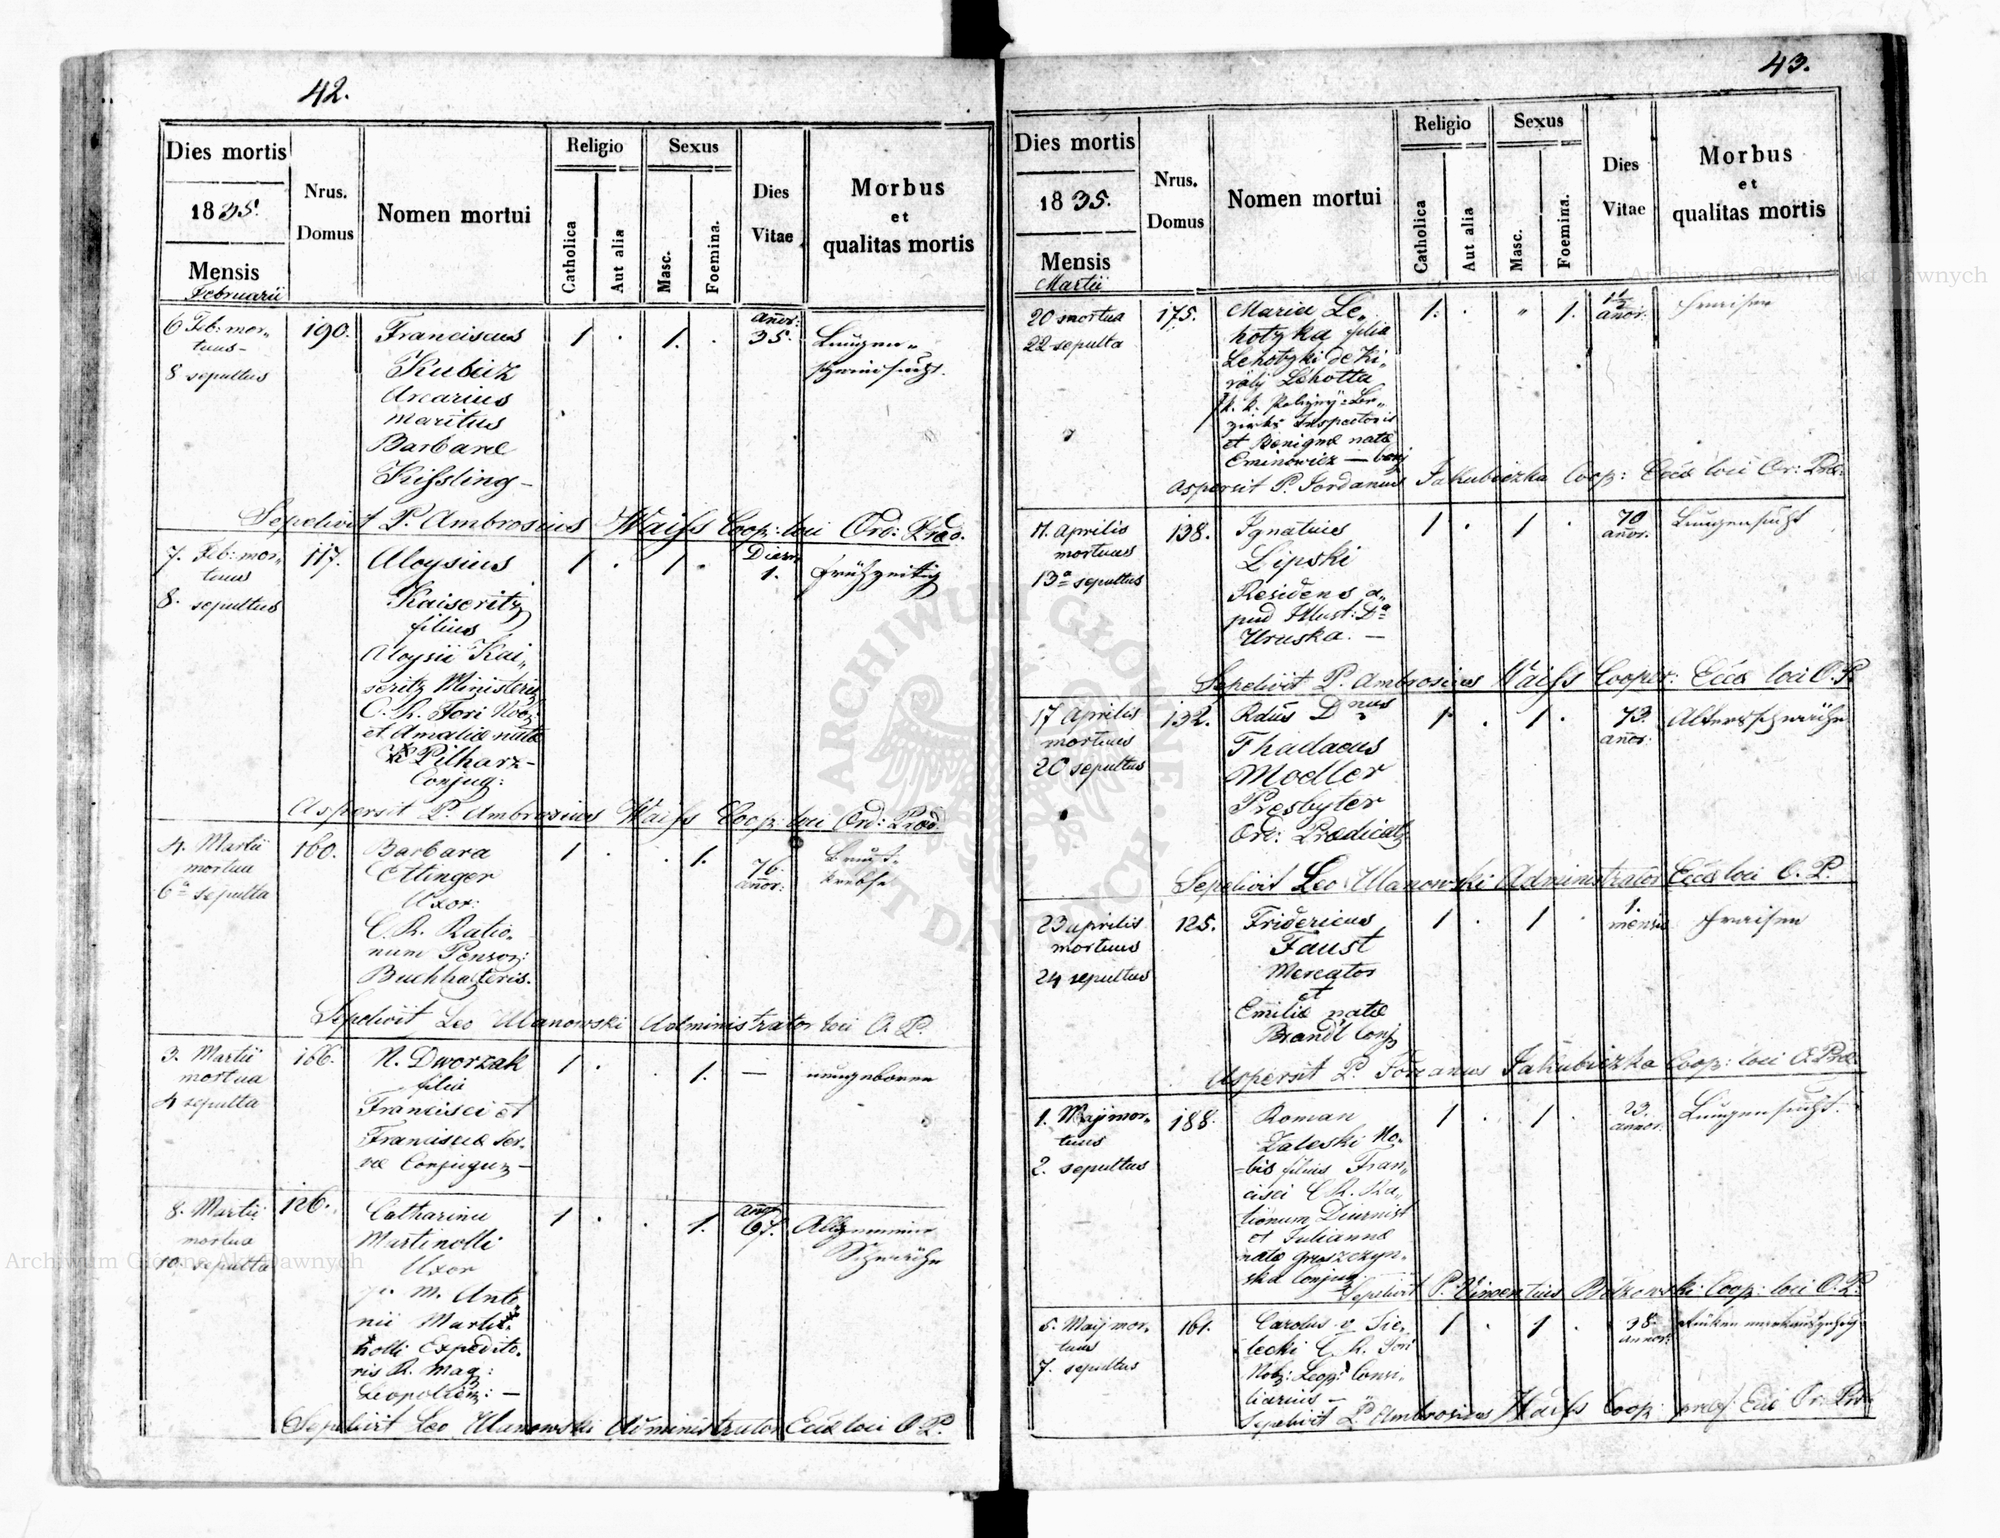 42.
Dies mortis
1835.
Mensis
Februarii
Nrus.
Domus
Nomen mortui
Religio
Catholica
Aut alia
Sexus
Masc.
Foemina.
Dies
Vitae
Morbus
et
qualitas mortis
6 Feb: mor-
tuus-
8 sepultus
190.
Franciscus
Kubicz
Arcarius
maritus
Barbarae
Kissling-
1 . 1. .
añor:
35.
Lungen-
schwindsucht.
Sepelivit P. Ambrosius Waiss Coop: loci Ord: Præd.
7. Feb: mor-
tuus
8. sepultus
117.
Aloysius
Kaiseritz
filius
Aloysii Kai-
seritz Ministeriz
C. R. Fori Nob:
et Amaliæ natæ
Pilharz-
Conjug:
1 . 1 .
Dierum
1.
Frühzeitig
Aspersit P. Ambrosius Waiss Coop: loci Ord: Præd.
4. Martii
mortua
6ª sepulta
160.
Barbara
Ettinger
Uxor:
C. R. Ratio-
num Penson:
Buchhalteris.
1 . . 1.
76.
añor:
Brust-
krebse
Sepelivit Leo Ulanowski Administrator loci O. P.
3. Martii
mortua
4 sepulta
166.
N. Dworzak
filia
Francisci et
Franciscæ Ser-
væ Conjugum-
1 . . 1. —
ungeboren
8. Martii
mortua
10. sepulta
126.
Catharina
Martinolli
Uxor
p. m. Anto-
nii Marti-
nolli Expedito-
ris R. Mag:
Leopoliens: -
1 . . 1.
añor
67.
Allgemeine
Schwäche
Sepelivit Leo Ulanowski Administrator Eccæ loci O P.
43.
Dies mortis
1835.
Mensis
Martii
Nrus.
Domus
Nomen mortui
Religio
Catholica
Aut alia
Sexus
Masc.
Foemina.
Dies
Vitae
Morbus
et
qualitas mortis
20 mortua
22 sepulta
175.
Maria Le-
hotzka filia
Lehotzki de Ki-
rály Lehotta
k. k. Be-
zirks Inspectoris
et Benignæ natæ
Eminowicz - conj
1. . " 1.
1½
añor:
Fraisen
Aspersit P. Jordanus Jakubiczka Coop: Eccæ loci Or: Præ:
11. Aprilis
mortuus
13ª sepultus
138.
Ignatius
Lipski
Residens a-
pud Illust: Dª
Uruska. -
1 . 1 .
70
añor.
Lungensucht
Sepelivit P. Ambrosius Waiss Cooper: Eccæ loci O. P.
17 Aprilis
mortuus
20 sepultus
132.
Rdus Dnus
Thadaeus
Moeller
Presbyter
Ord: Prædicat
1 . 1 .
73.
añor:
Altersschwäche
Sepelivit Leo Ulanowski Administrator Eccæ loci O. P.
23 aprilis
mortuus
24 sepultus
125.
Fridericus
Faust
Mercator
et
Emiliæ natæ
Brandt Conj
1 . 1 .
1.
mensis
Fraisen
Aspersit P. Jordanus Jakubiczka Coop: loci O. Præ.
1. Maij mor-
tuus
2. sepultus
188.
Roman
Zaleski No-
bis filius Fran-
cisci C. R. Ra-
tionum Diurnist
et Juliannæ
natæ Gruszczyn-
ska Conjug
1 . 1 .
23.
annor.
Lungensucht.
Sepelivit P. Vincentius Bilkowski Coop: loci O. P.
5. Maij mor-
tuus
7. sepultus
161.
Carolus v. Sie-
lecki C. R. Fori
Nob: Leop: Consi-
liarius -
1 . 1 .
38.
annor.
Sepelivit P. Ambrosius Waiss Coop: Or: Præ.
ARCHIWUM GŁÓWNE AKT DAWNYCH
Archiwum Główne Akt Dawnych
Archiwum Główne Akt Dawnych